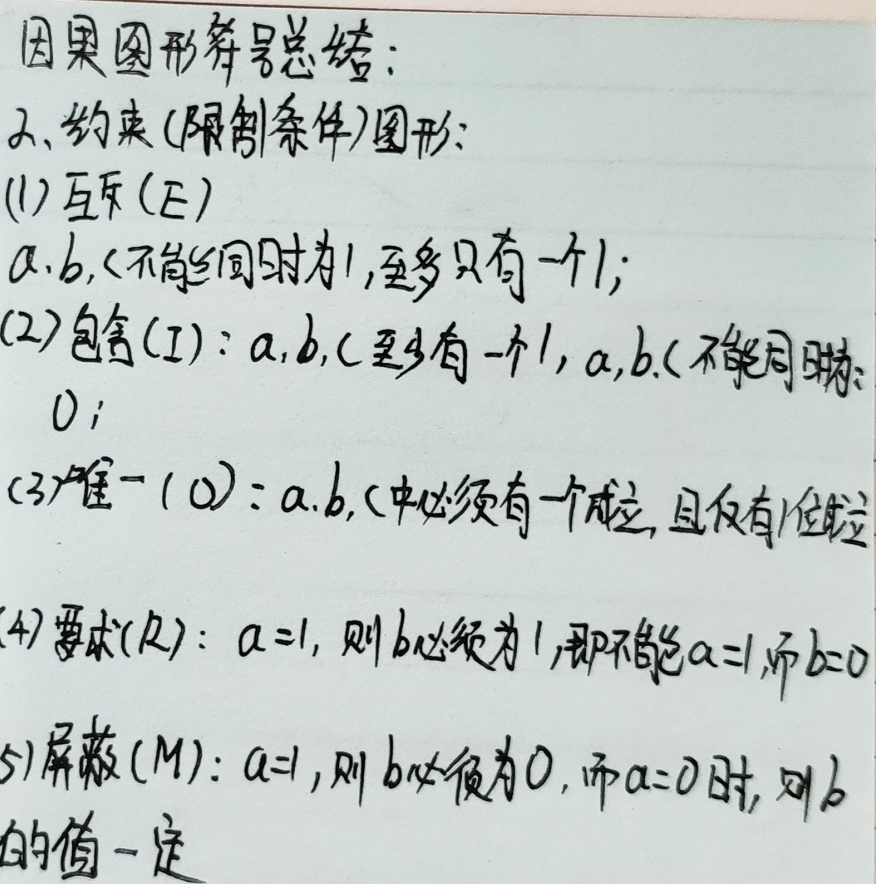 因果图形符号总结:
2、约束(限制条件)图形:
(1)互斥(E)
a.b,c不能同时为1,至多只有一个1;
(2)包含(I): a,b,c至少有一个1, a,b.c不能同时为:
0;
(3)唯一(O): a.b,c中必须有一个成立,且仅有1位成立
(4)要求(R): a=1,则b必须为1,即不能a=1,而b=0
5)屏蔽(M): a=1,则b必须为0,而a=0时,则b
的值一定